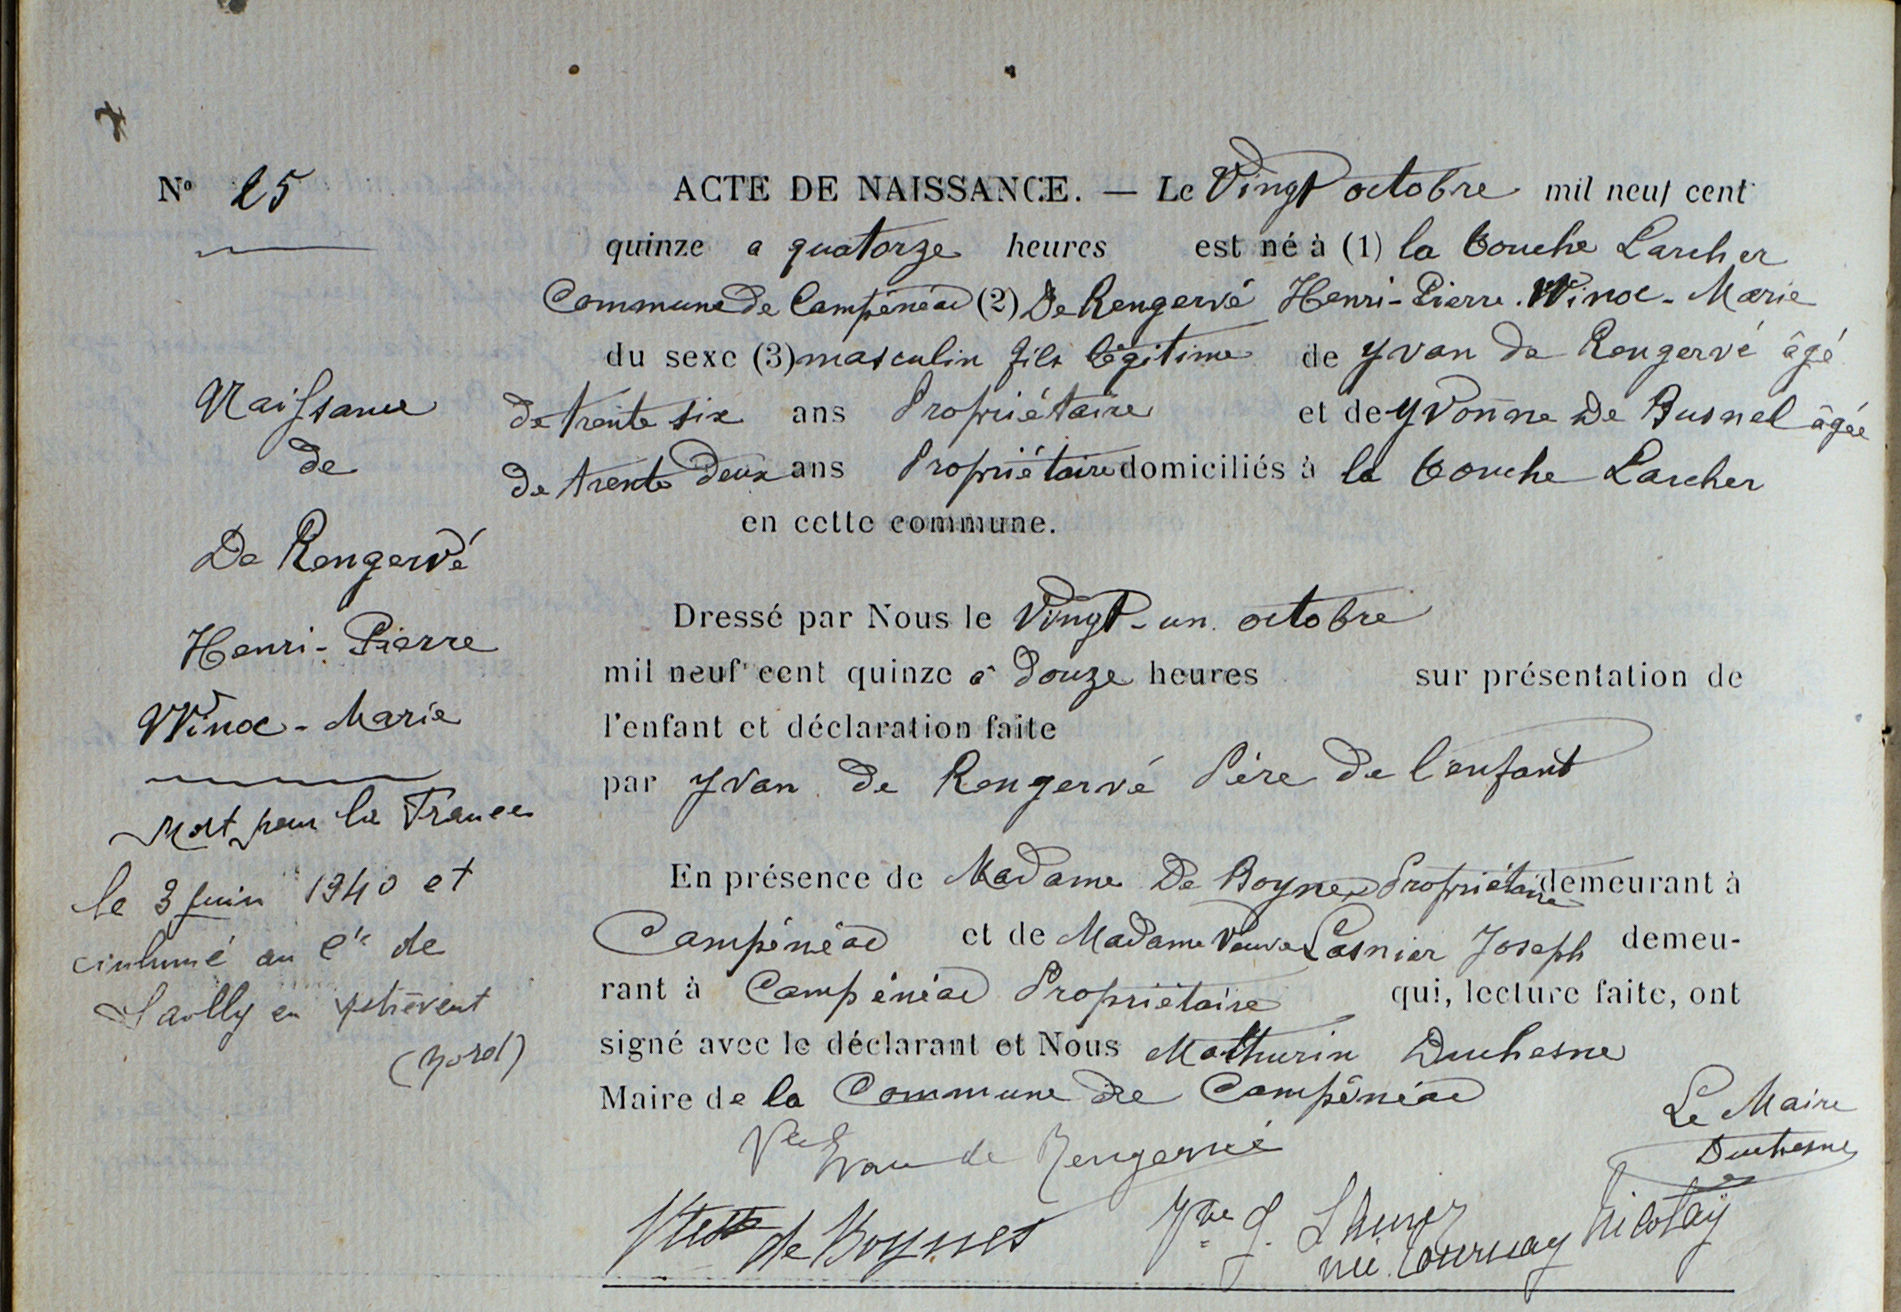 N° 25
ACTE DE NAISSANCE. — Le Vingt octobre mil neuf cent
quinze a quatorze heures est né à (1) la touche Larcher
Commune de Campénéac (2) De Rengervé Henri-Pierre. Winoc-Marie
du sexe (3) masculin fils légitime de Yvan de Rengervé âgé
de trente six ans Propriétaire et de Yvonne De Busnel âgée
de trente deux ans Propriétaire domiciliés à la touche Larcher
en cette commune.
Naissance
de
De Rengervé
Henri-Pierre
Winoc-Marie
Mort pour la France
le 3 juin 1940 et
inhumé au Cre de
Sailly en
(Nord)
Dressé par Nous le Vingt-un octobre
mil neuf cent quinze à douze heures sur présentation de
l'enfant et déclaration faite
par Yvan de Rengervé Père de l'enfant
En présence de Madame De Boynes Propriétaire demeurant à
Campénéac et de Madame Veuve Lasnier Joseph demeu-
rant à Campénéac Propriétaire qui, lecture faite, ont
signé avec le déclarant et Nous Mathurin Duchesne
Maire de la Commune de Campénéac
Le Maire
Duchesne
Yvan de Rengervé
de Boynes
Vve J.
née Tournay Nicolaÿ